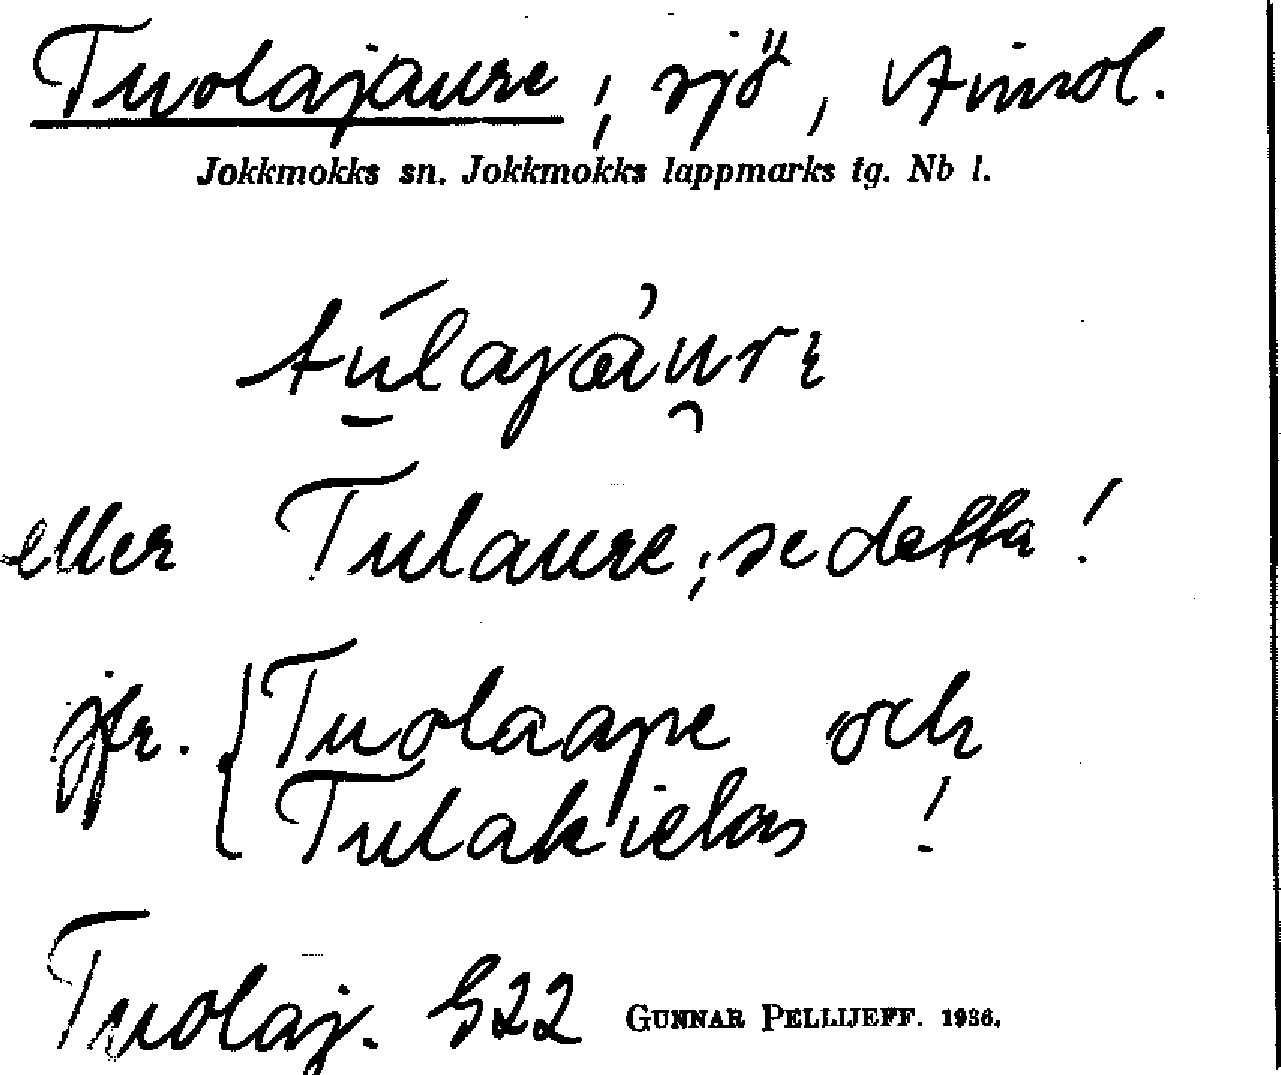 Tuolajaure; sjö, Aimol.
Jokkmokks sn. Jokkmokks lappmarks tg. Nb l.
eller Tulaure; se detta!
jfr. { Tuolaape och
Tulakielas !
Tuolaj. G22 GUNNAR PELLIJEFF. 1936.